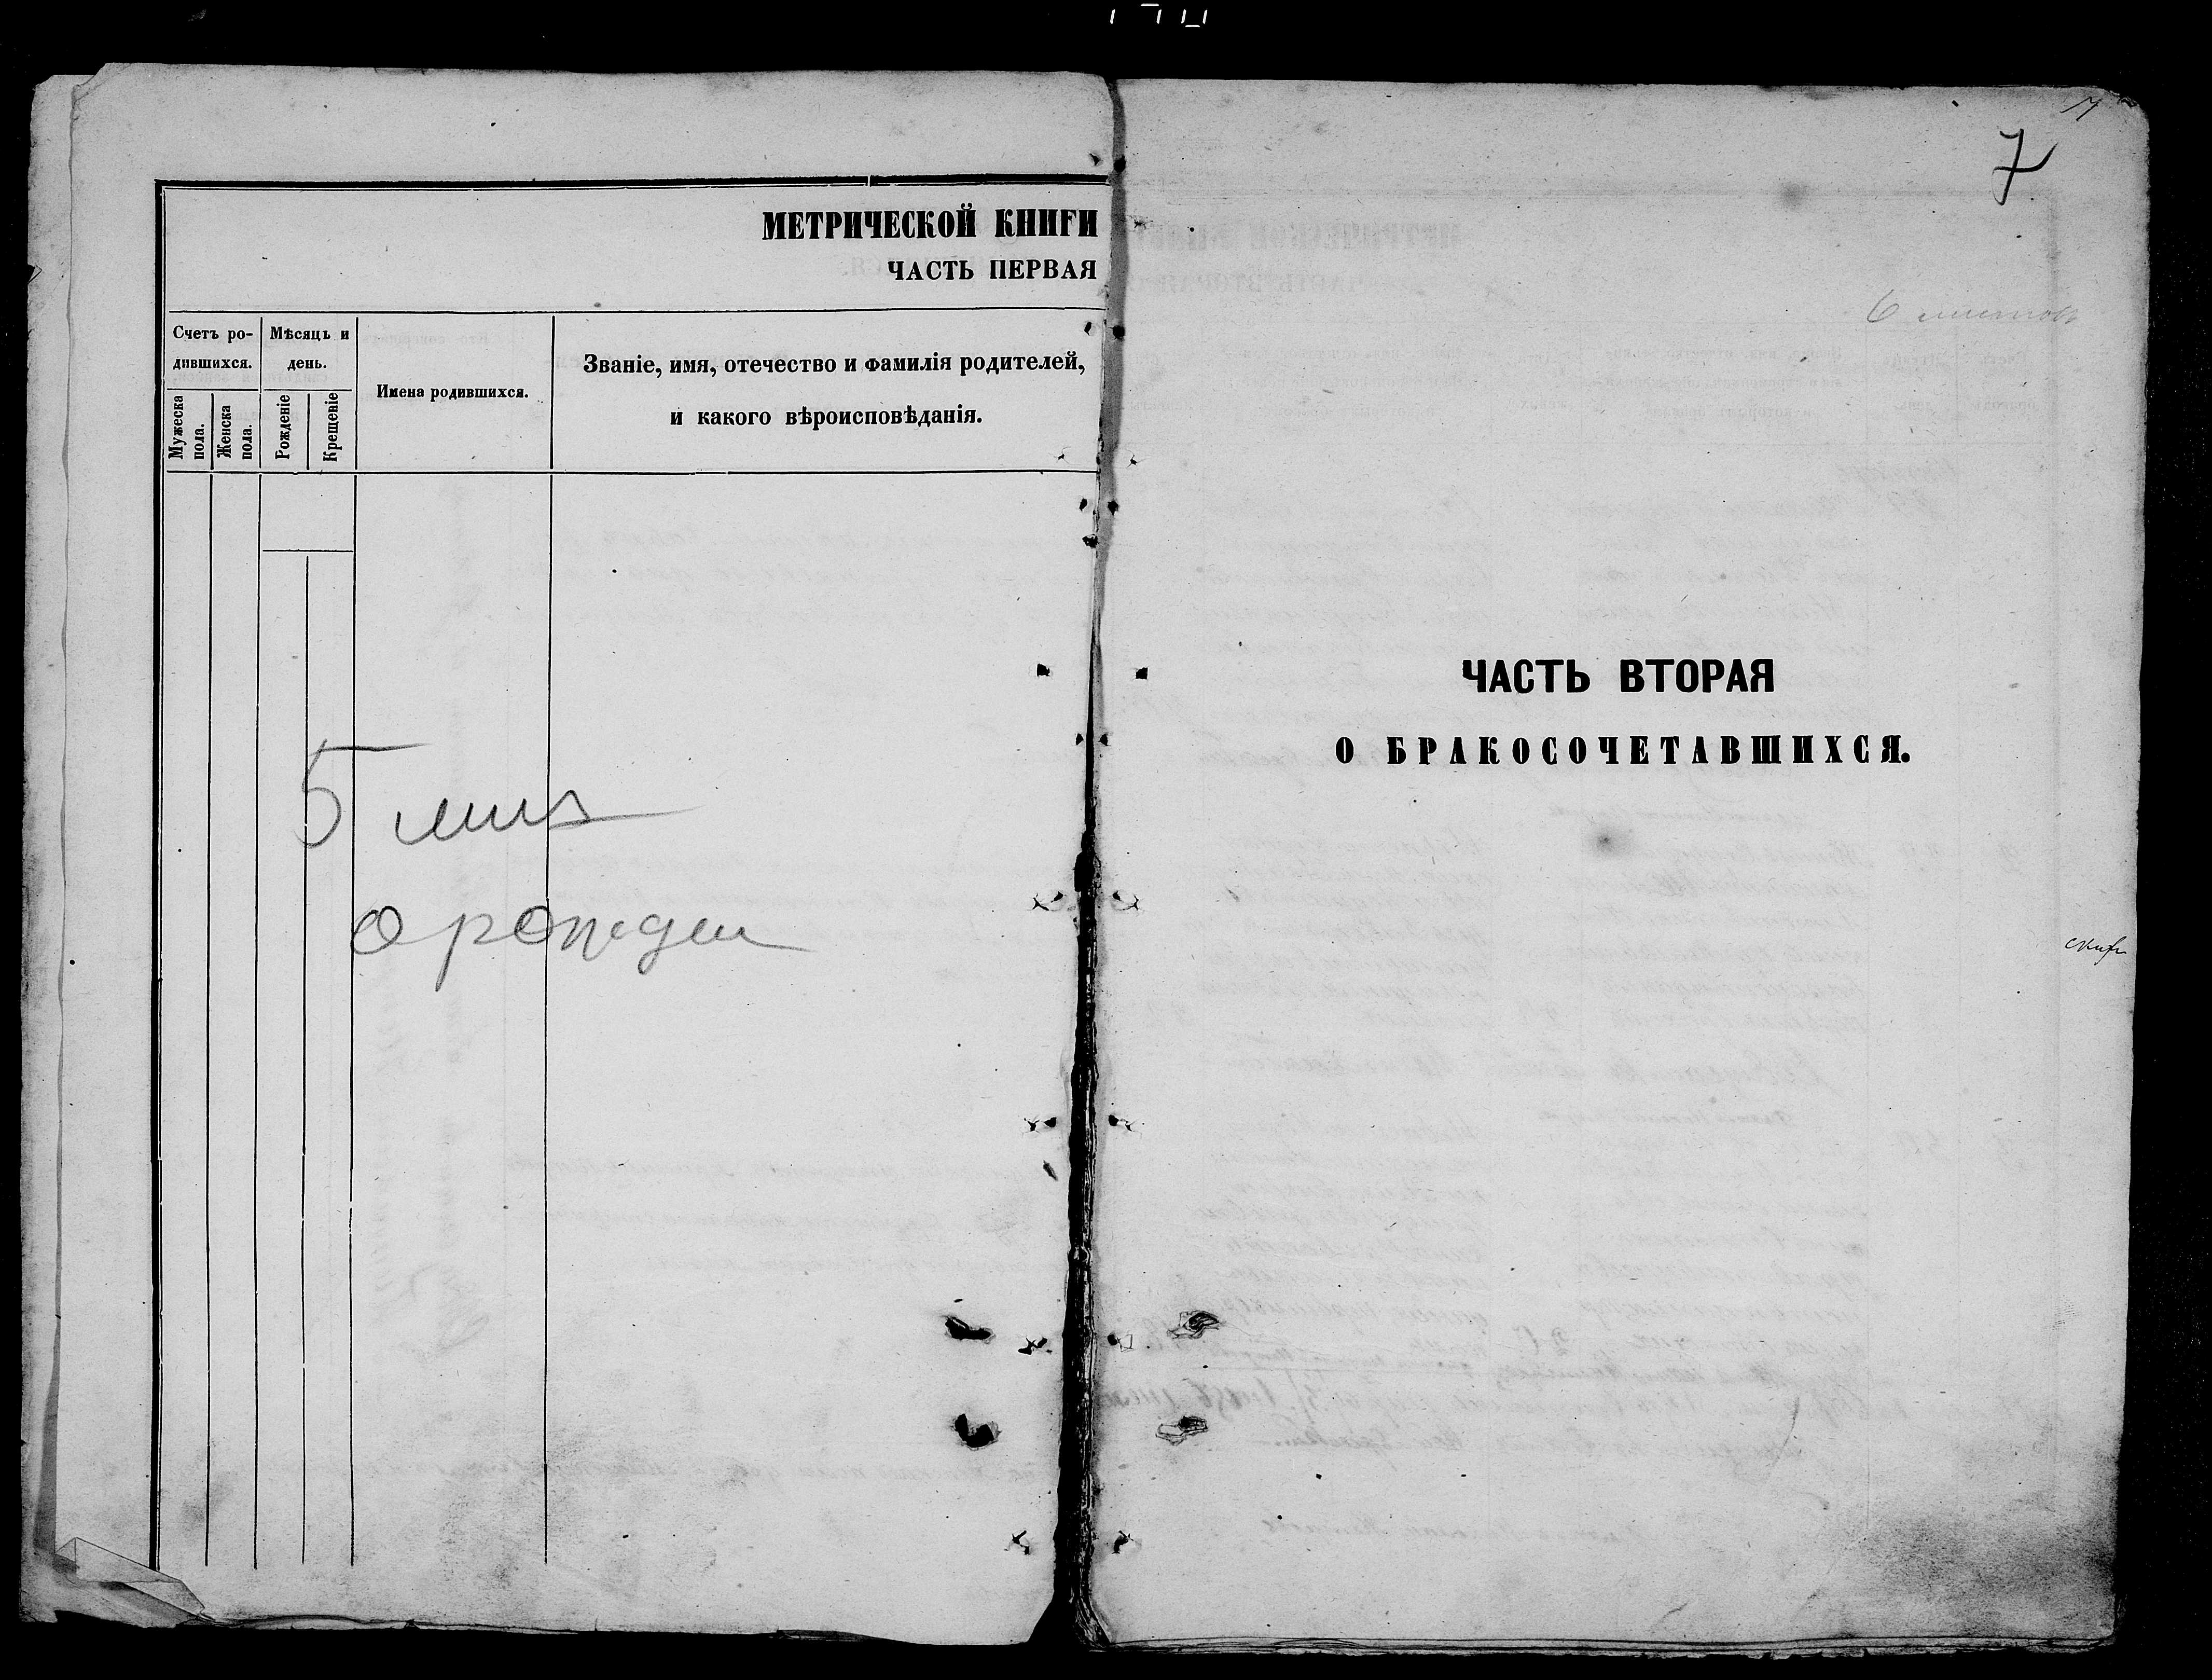 МЕТРИЧЕСКОЙ КНИГИ
ЧАСТЬ ПЕРВАЯ
Счетъ ро-
дившихся.
Мужеска
пола.
Женска
пола.
Мѣсяцъ и
день.
Рожденіе
Крещеніе
Имена родившихся.
Званіе, имя, отечество и фамилія родителей,
и какого вѣроисповѣданія.
5
о рожден
7
6 листовъ
ЧАСТЬ ВТОРАЯ
О БРАКОСОЧЕТАВШИХСЯ.